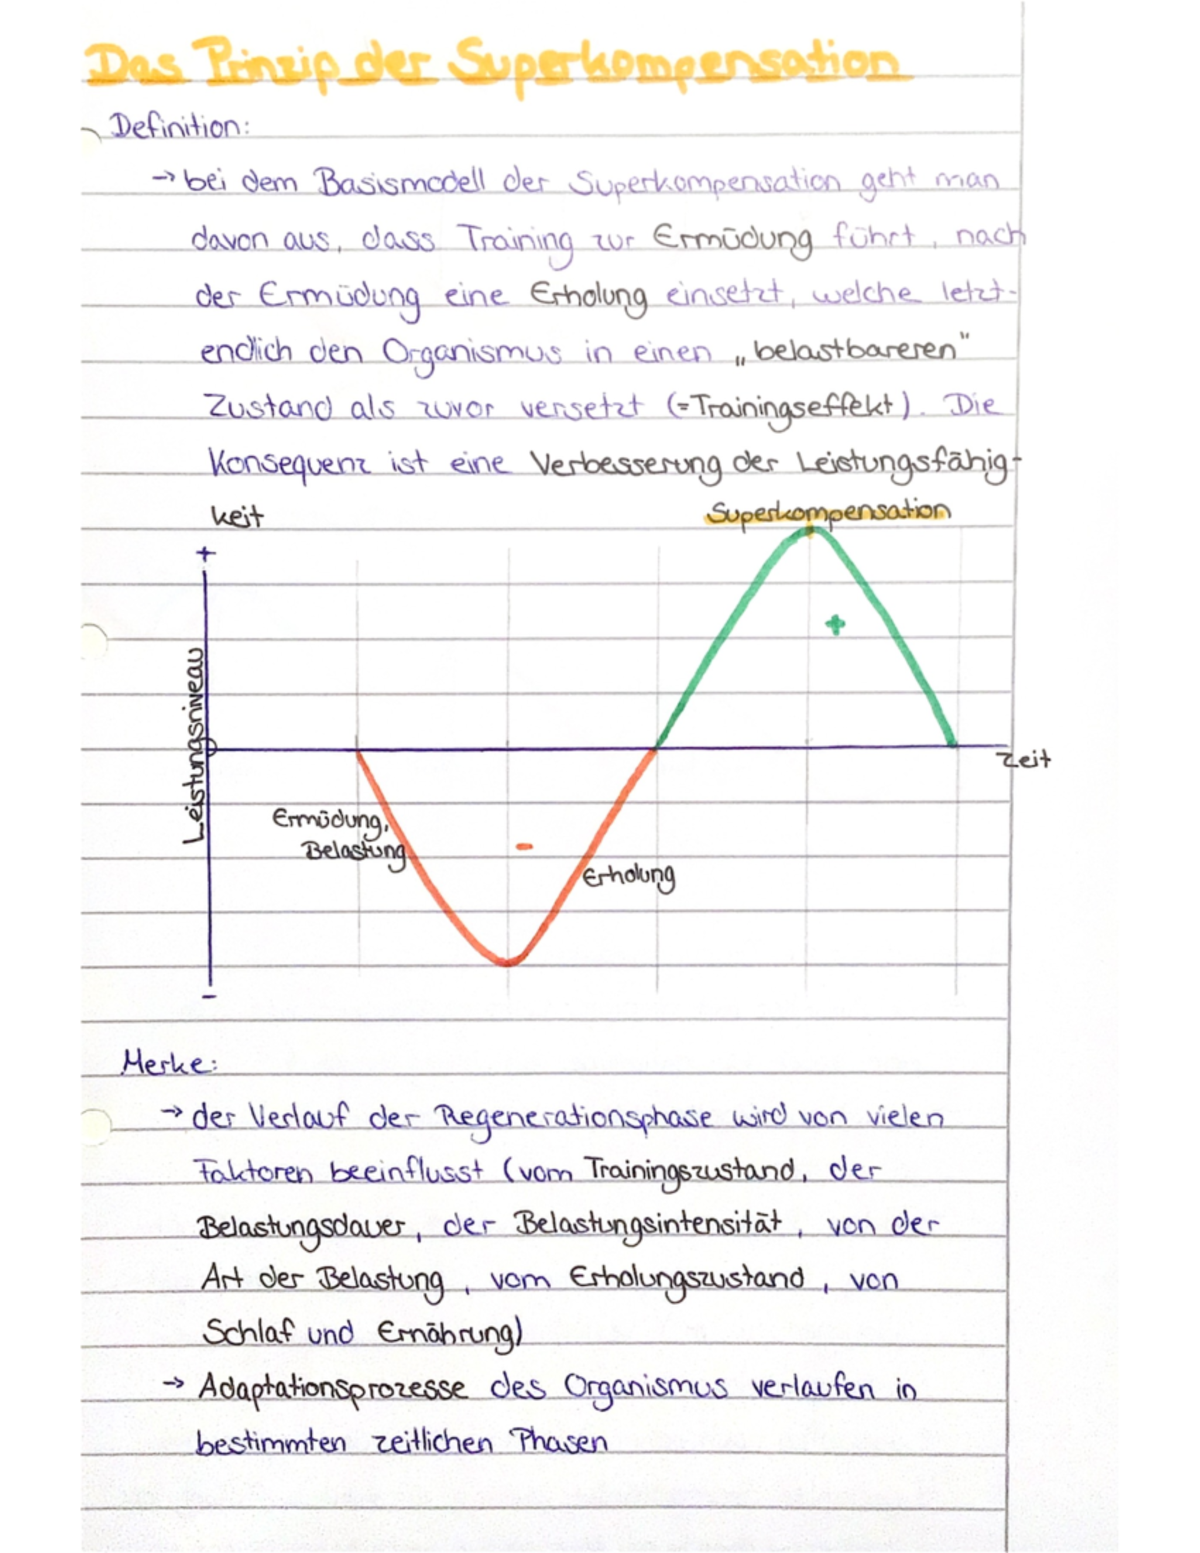 Das Prinzip der Superkompensation
Definition:
→ bei dem Basismodell der Superkompensation geht man
davon aus, dass Training zur Ermüdung führt, nach
der Ermüdung eine Erholung einsetzt, welche letzt-
endlich den Organismus in einen „belastbareren“
Zustand als zuvor versetzt (=Trainingseffekt). Die
Konsequenz ist eine Verbesserung der Leistungsfähig-
keit
Superkompensation
+
+
Leistungsniveau
Zeit
Ermüdung,
Belastung
-
Erholung
-
Merke:
→ der Verlauf der Regenerationsphase wird von vielen
Faktoren beeinflusst (vom Trainingszustand, der
Belastungsdauer, der Belastungsintensität, von der
Art der Belastung, vom Erholungszustand, von
Schlaf und Ernährung)
→ Adaptationsprozesse des Organismus verlaufen in
bestimmten zeitlichen Phasen